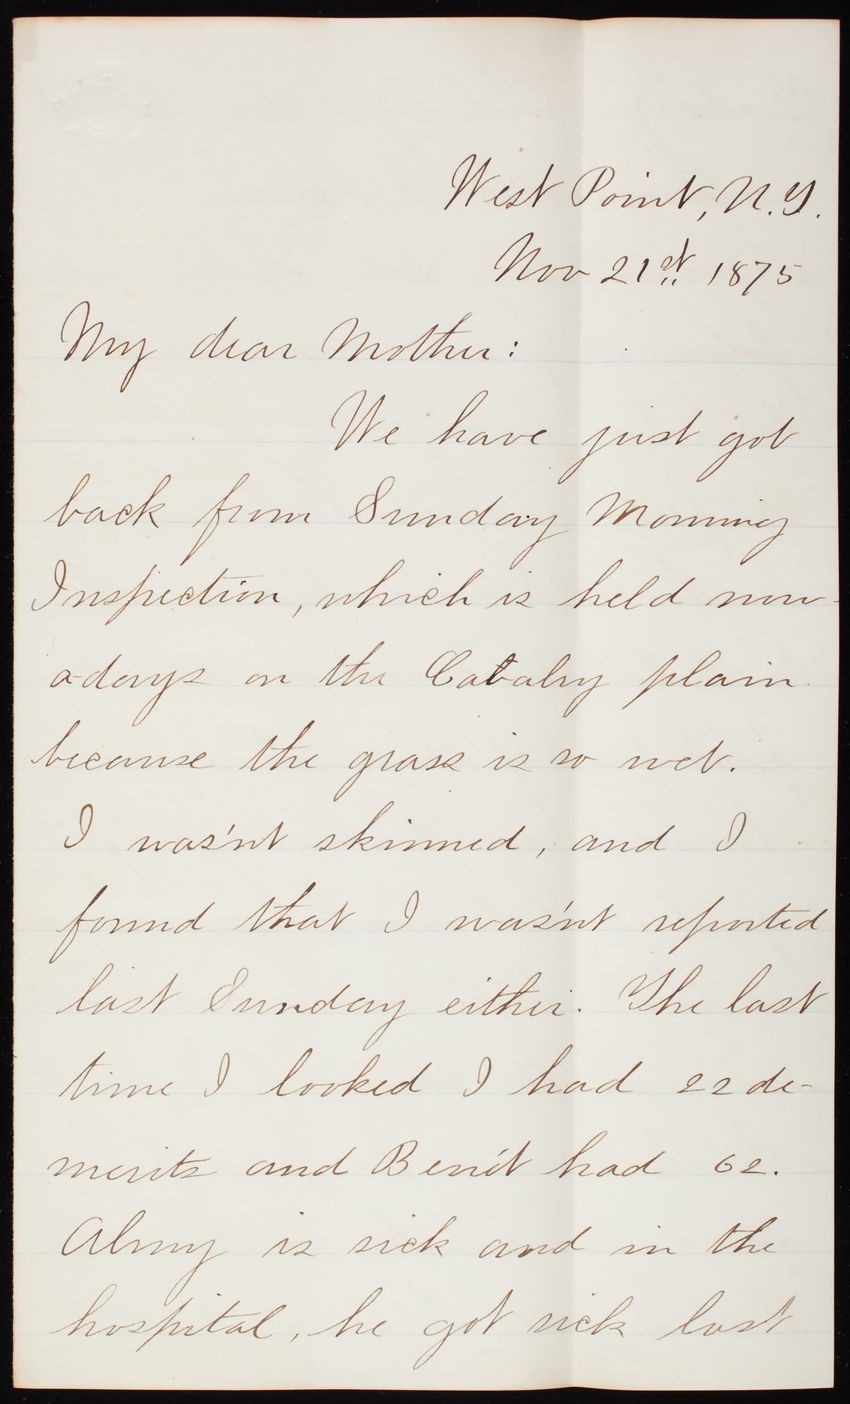 West Point, N.Y.
Nov 21st 1875
My dear Mother:
We have just got
back from Sunday Morning
Inspection, which is held now-
a-days on the Cavalry plain
because the grass is so wet.
I was'nt skinned, and I
found that I was'nt reported
last Sunday either. The last
time I looked I had 22 de-
merits and Benét had 62.
Almy is sick and in the
hospital, he got sick last